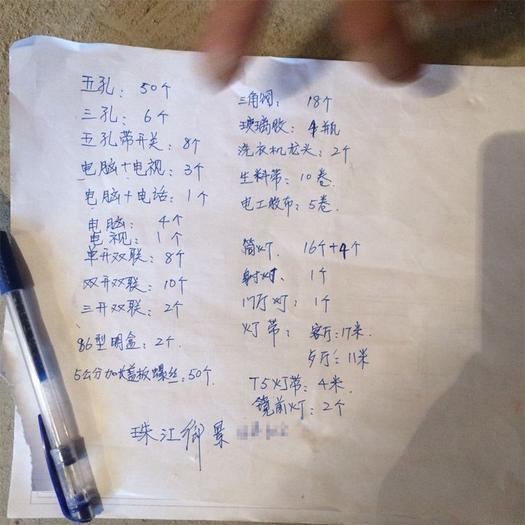 五孔: 50个
三孔: 6个
五孔带开关: 8个
电脑+电视: 3个
电脑+电话: 1个
电脑: 4个
电视: 1个
单开双联: 8个
双开双联: 10个
三开双联: 2个
86型明盒: 2个.
5公分加长盖板螺丝: 50个.
三角阀: 18个
玻璃胶: 4瓶
洗衣机龙头: 2个
生料带: 10卷
电工胶布: 5卷.
筒灯. 16个+4个
射灯. 1个
门厅灯: 1个
灯带: 客厅: 17米.
歺厅: 11米
T5灯带: 4米.
镜前灯: 2个
珠江御景